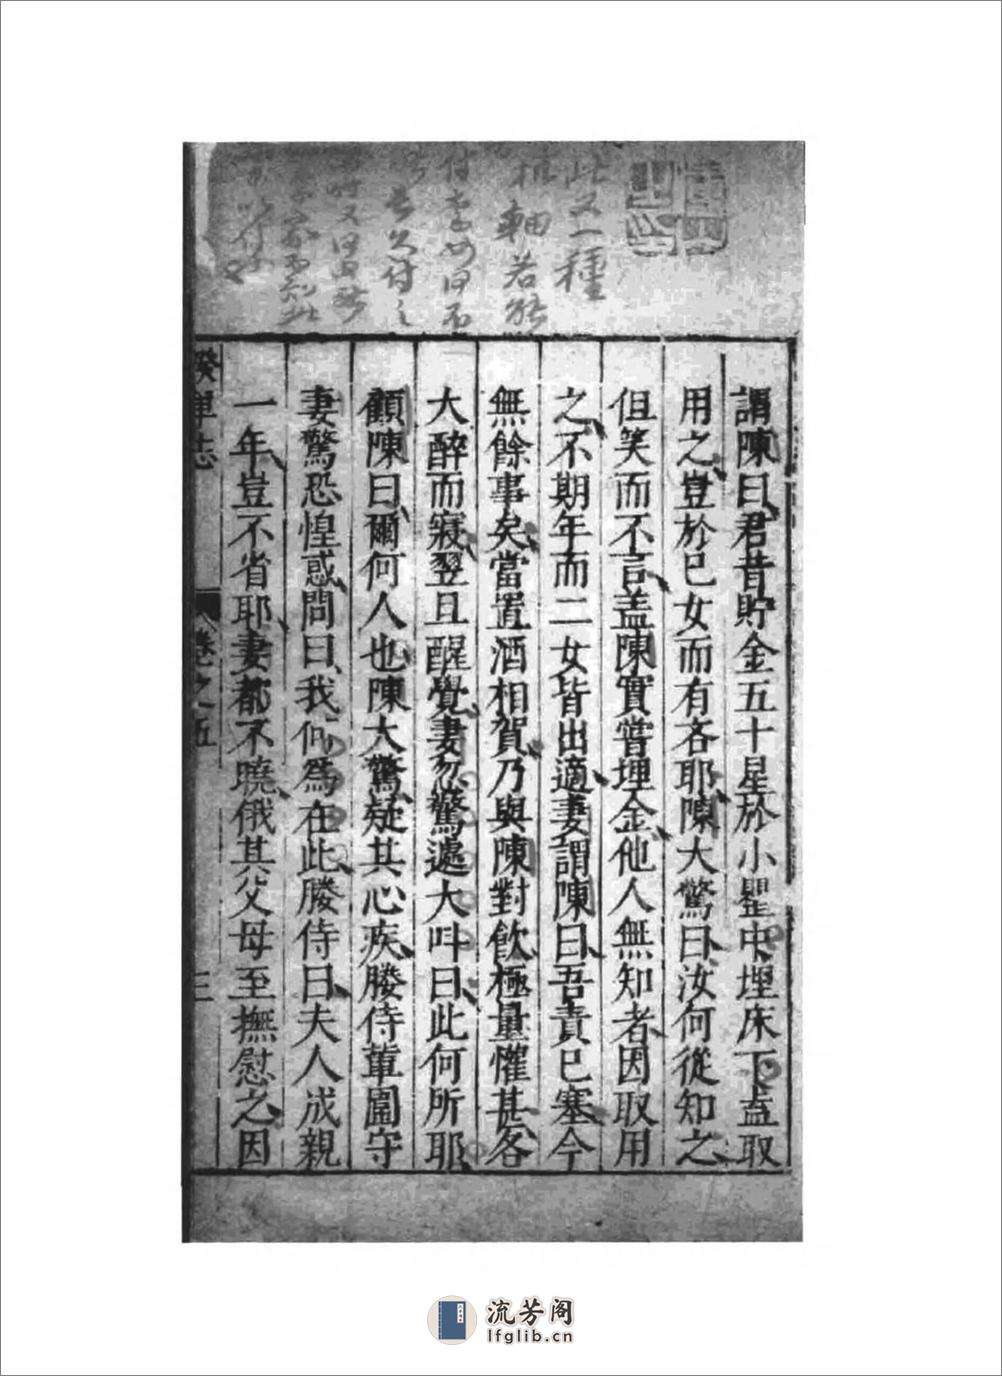 此又一種
謂陳曰君昔貯金五十星於小瞿中埋床下盍取
用之豈於已女而有吝耶陳大驚曰汝何從知之
但笑而不言盖陳實嘗埋金他人無知者因取用
之不期年而二女皆出適妻謂陳曰吾責已塞今
無餘事矣當置酒相賀乃與陳對飲極量懽甚各
大醉而寢翌旦醒覺妻忽驚遽大呌曰此何所耶
顧陳曰爾何人也陳大驚疑其心疾媵侍輩圍守
妻驚恐惶惑問曰我何為在此媵侍曰夫人成親
一年豈不省耶妻都不曉俄其父母至撫慰之因
睽車志
卷之五
三
流芳阁
lfglib.cn